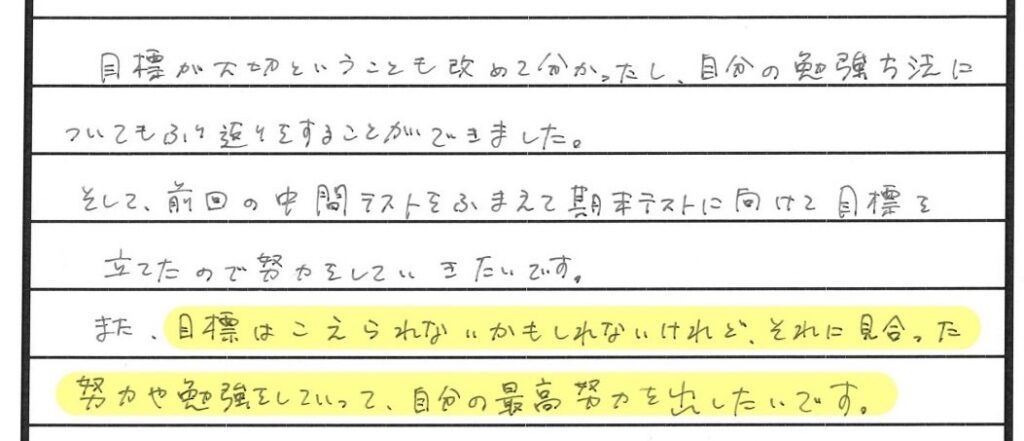 目標が大切ということも改めて分かったし、自分の勉強方法に
ついてもふり返りをすることができました。
そして、前回の中間テストをふまえて期末テストに向けて目標を
立てたので努力をしていきたいです。
また、目標はこえられないかもしれないけれど、それに見合った
努力や勉強をしていって、自分の最高努力を出したいです。